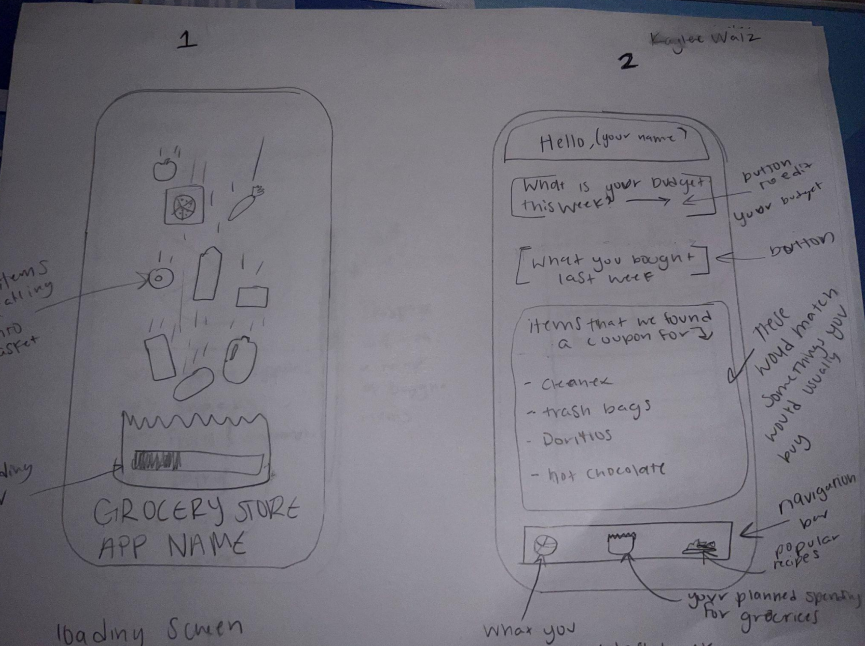 1
2
Kaylee Walz
items
into
GROCERY STORE
APP NAME
loading screen
Hello, (your name)
What is your budget
this week?
button
to edit
your budget
What you bought
last week
button
items that we found
a coupon for
- cleanex
- trash bags
- Doritios
- hot chocolate
these
would match
somethings
would usually you
buy
navigation
bar
popular
recipes
your planned spending
for
what you